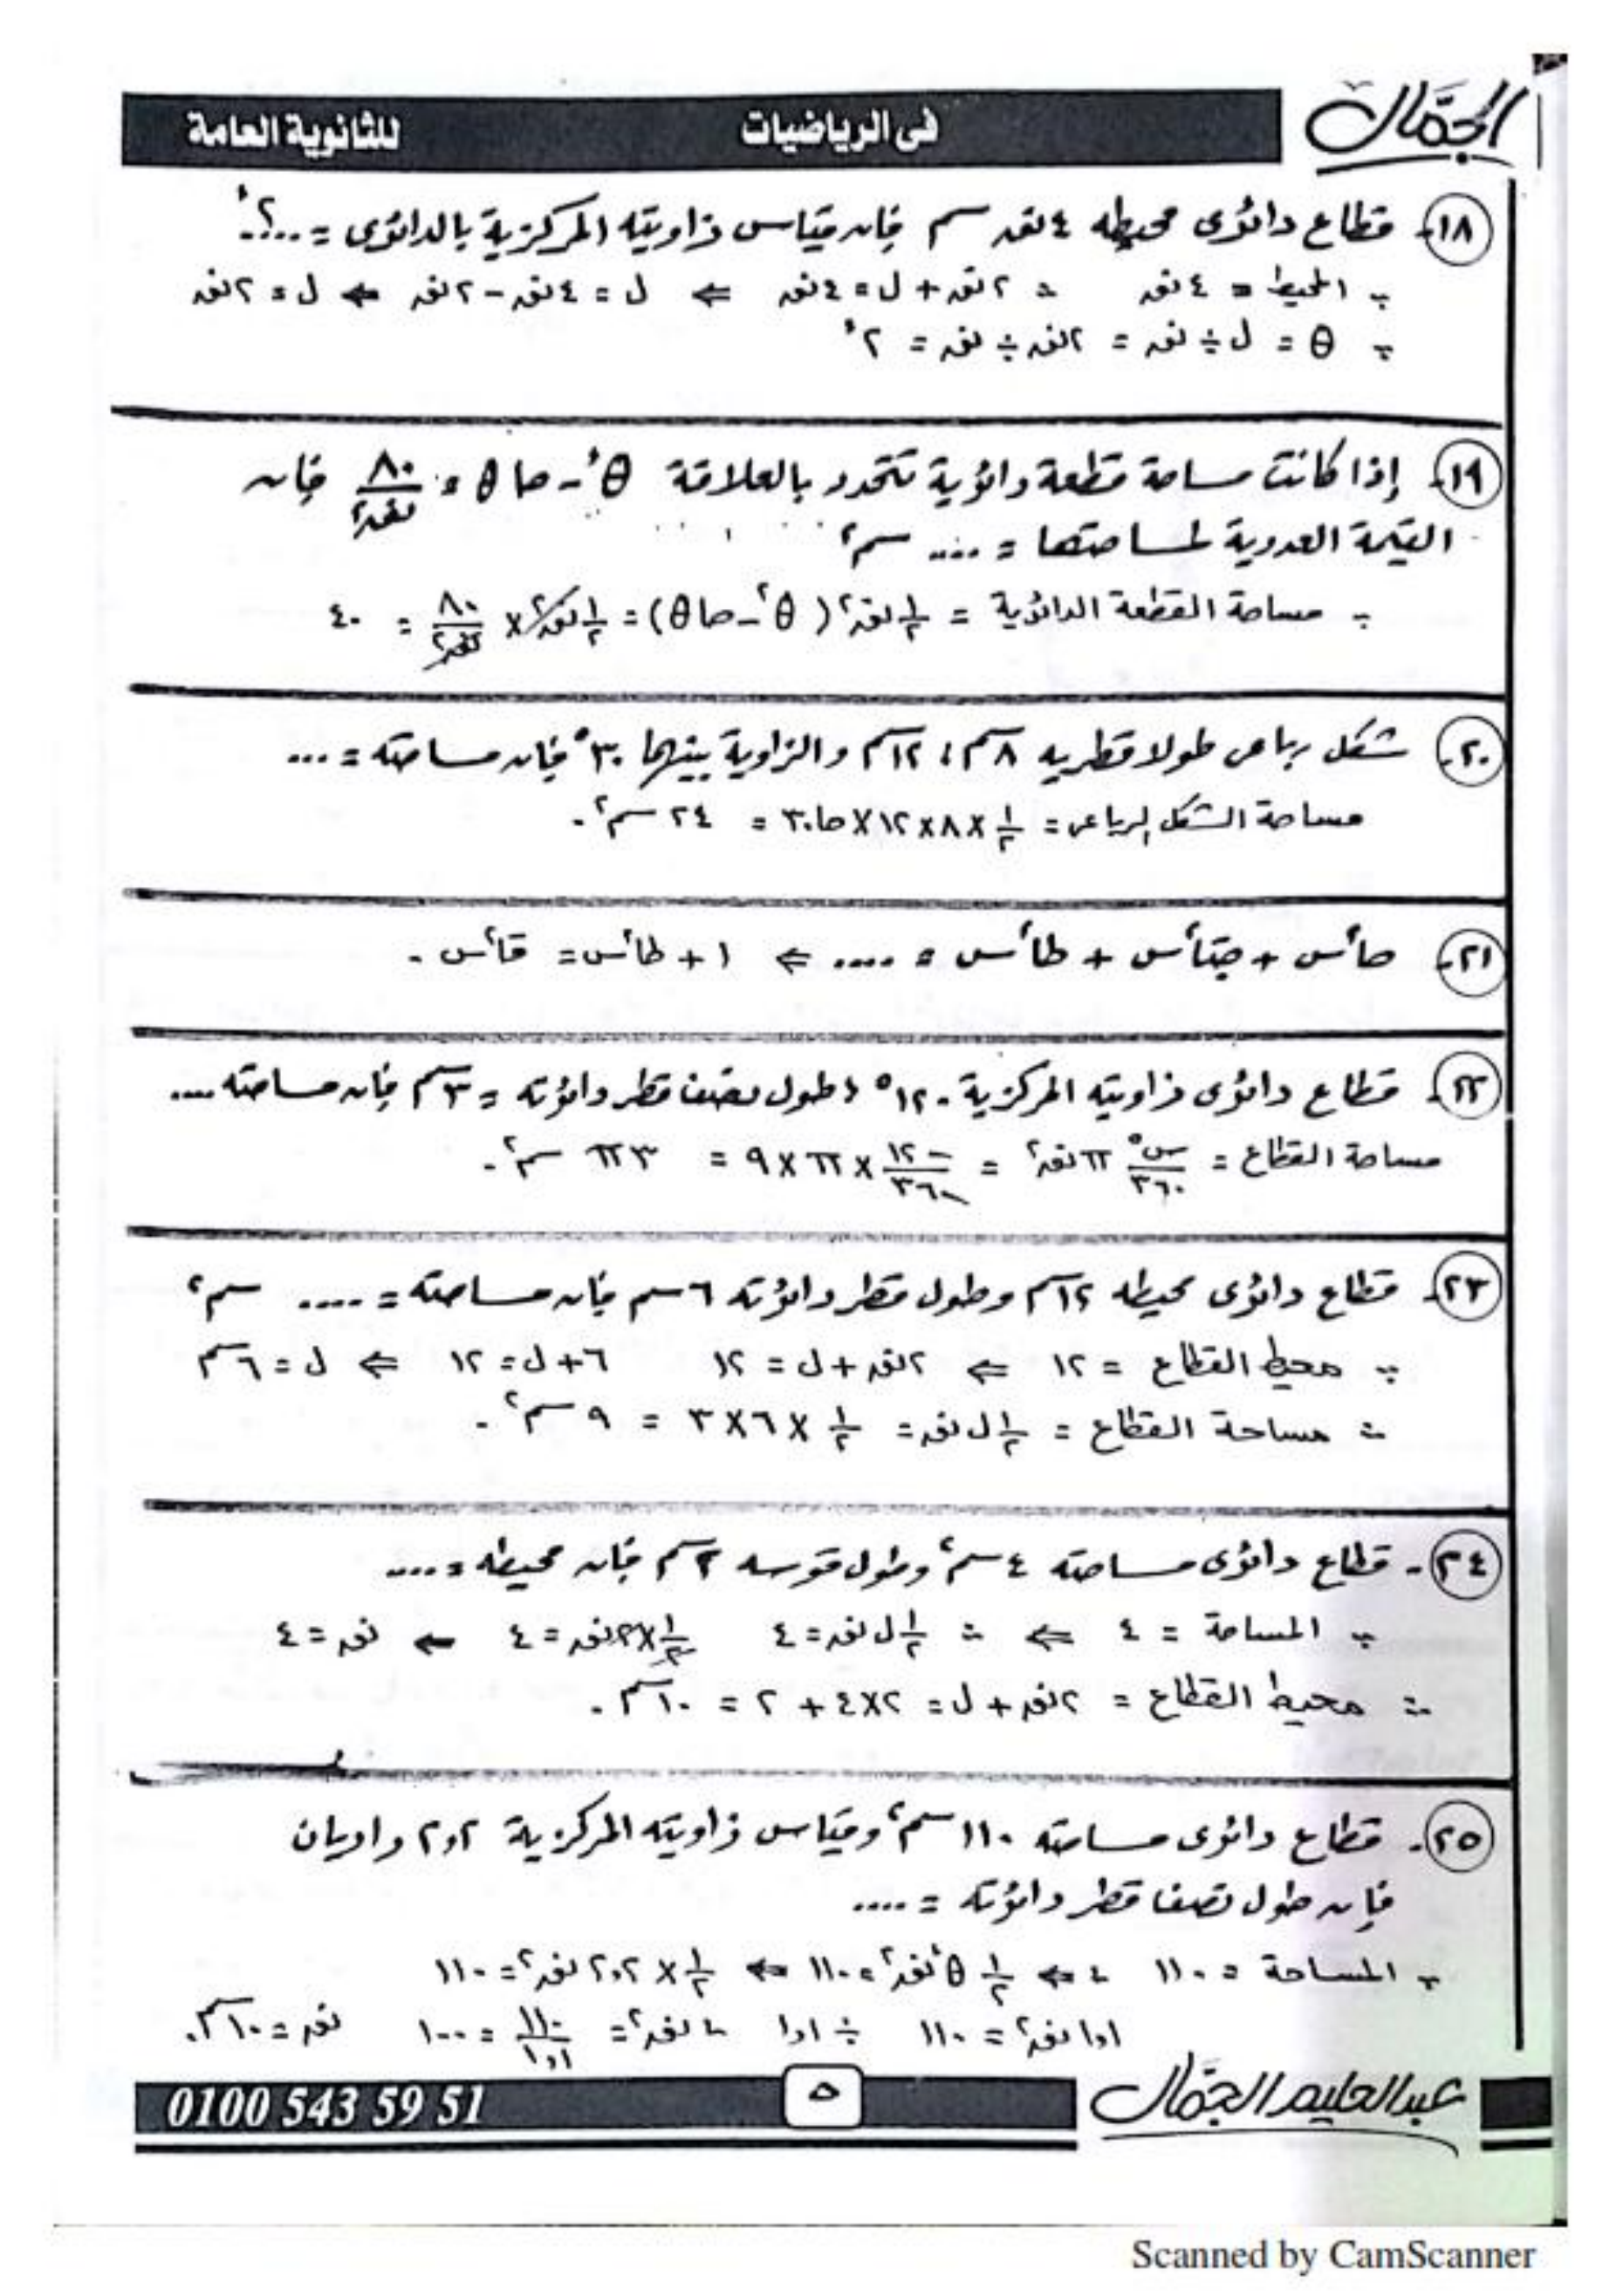 الجمّال
فى الرياضيات
للثانوية العامة
١٨- قطاع دائرى محيطه ٤ نق سم فإن قياس زاويته المركزية بالدائرى = ....؟ء
∵ المحيط = ٤ نق ∴ ٢ نق + ل = ٤ نق ⇐ ل = ٤ نق - ٢ نق ⇐ ل = ٢ نق
∵ θ = ل ÷ نق = ٢ نق ÷ نق = ٢ء
١٩- إذا كانت مساحة قطعة دائرية تتحدد بالعلاقة θء - حا θ = ٨٠/نق² فإن
القيمة العددية لمساحتها = .... سم²
∵ مساحة القطعة الدائرية = ١/٢ نق² (θء - حا θ) = ١/٢ نق² × ٨٠/نق² = ٤٠
٢٠- شكل رباعى طولا قطريه ٨سم ، ١٢سم والزاوية بينهما ٣٠° فإن مساحته = ...
مساحة الشكل الرباعى = ١/٢ × ٨ × ١٢ × حا ٣٠ = ٢٤ سم².
٢١- حا²س + حتا²س + طا²س = .... ⇐ ١ + طا²س = قا²س .
٢٢- قطاع دائرى زاويته المركزية ١٢٠° ، طول نصف قطر دائرته = ٣سم فإن مساحته ....
مساحة القطاع = س°/٣٦٠ π نق² = ١٢٠/٣٦٠ × π × ٩ = ٣π سم².
٢٣- قطاع دائرى محيطه ١٢سم وطول قطر دائرته ٦ سم فإن مساحته = .... سم²
∵ محيط القطاع = ١٢ ⇐ ٢ نق + ل = ١٢ ٦ + ل = ١٢ ⇐ ل = ٦سم
∴ مساحة القطاع = ١/٢ ل نق = ١/٢ × ٦ × ٣ = ٩ سم².
٢٤- قطاع دائرى مساحته ٤ سم² وطول قوسه ٢سم فإن محيطه = ....
∵ المساحة = ٤ ⇐ ∴ ١/٢ ل نق = ٤ ١/٢ × ٢ نق = ٤ ← نق = ٤
∴ محيط القطاع = ٢ نق + ل = ٢ × ٤ + ٢ = ١٠سم.
٢٥- قطاع دائرى مساحته ١١٠ سم² وقياس زاويته المركزية ٢,٢ راديان
فإن طول نصف قطر دائرته = ....
∵ المساحة = ١١٠ ⇐ ١/٢ θء نق² = ١١٠ ⇐ ١/٢ × ٢,٢ نق² = ١١٠
١,١ نق² = ١١٠ ÷ ١,١ ∴ نق² = ١١٠/١,١ = ١٠٠ نق = ١٠سم.
عبدالحليم الجمّال
٥
0100 543 59 51
Scanned by CamScanner